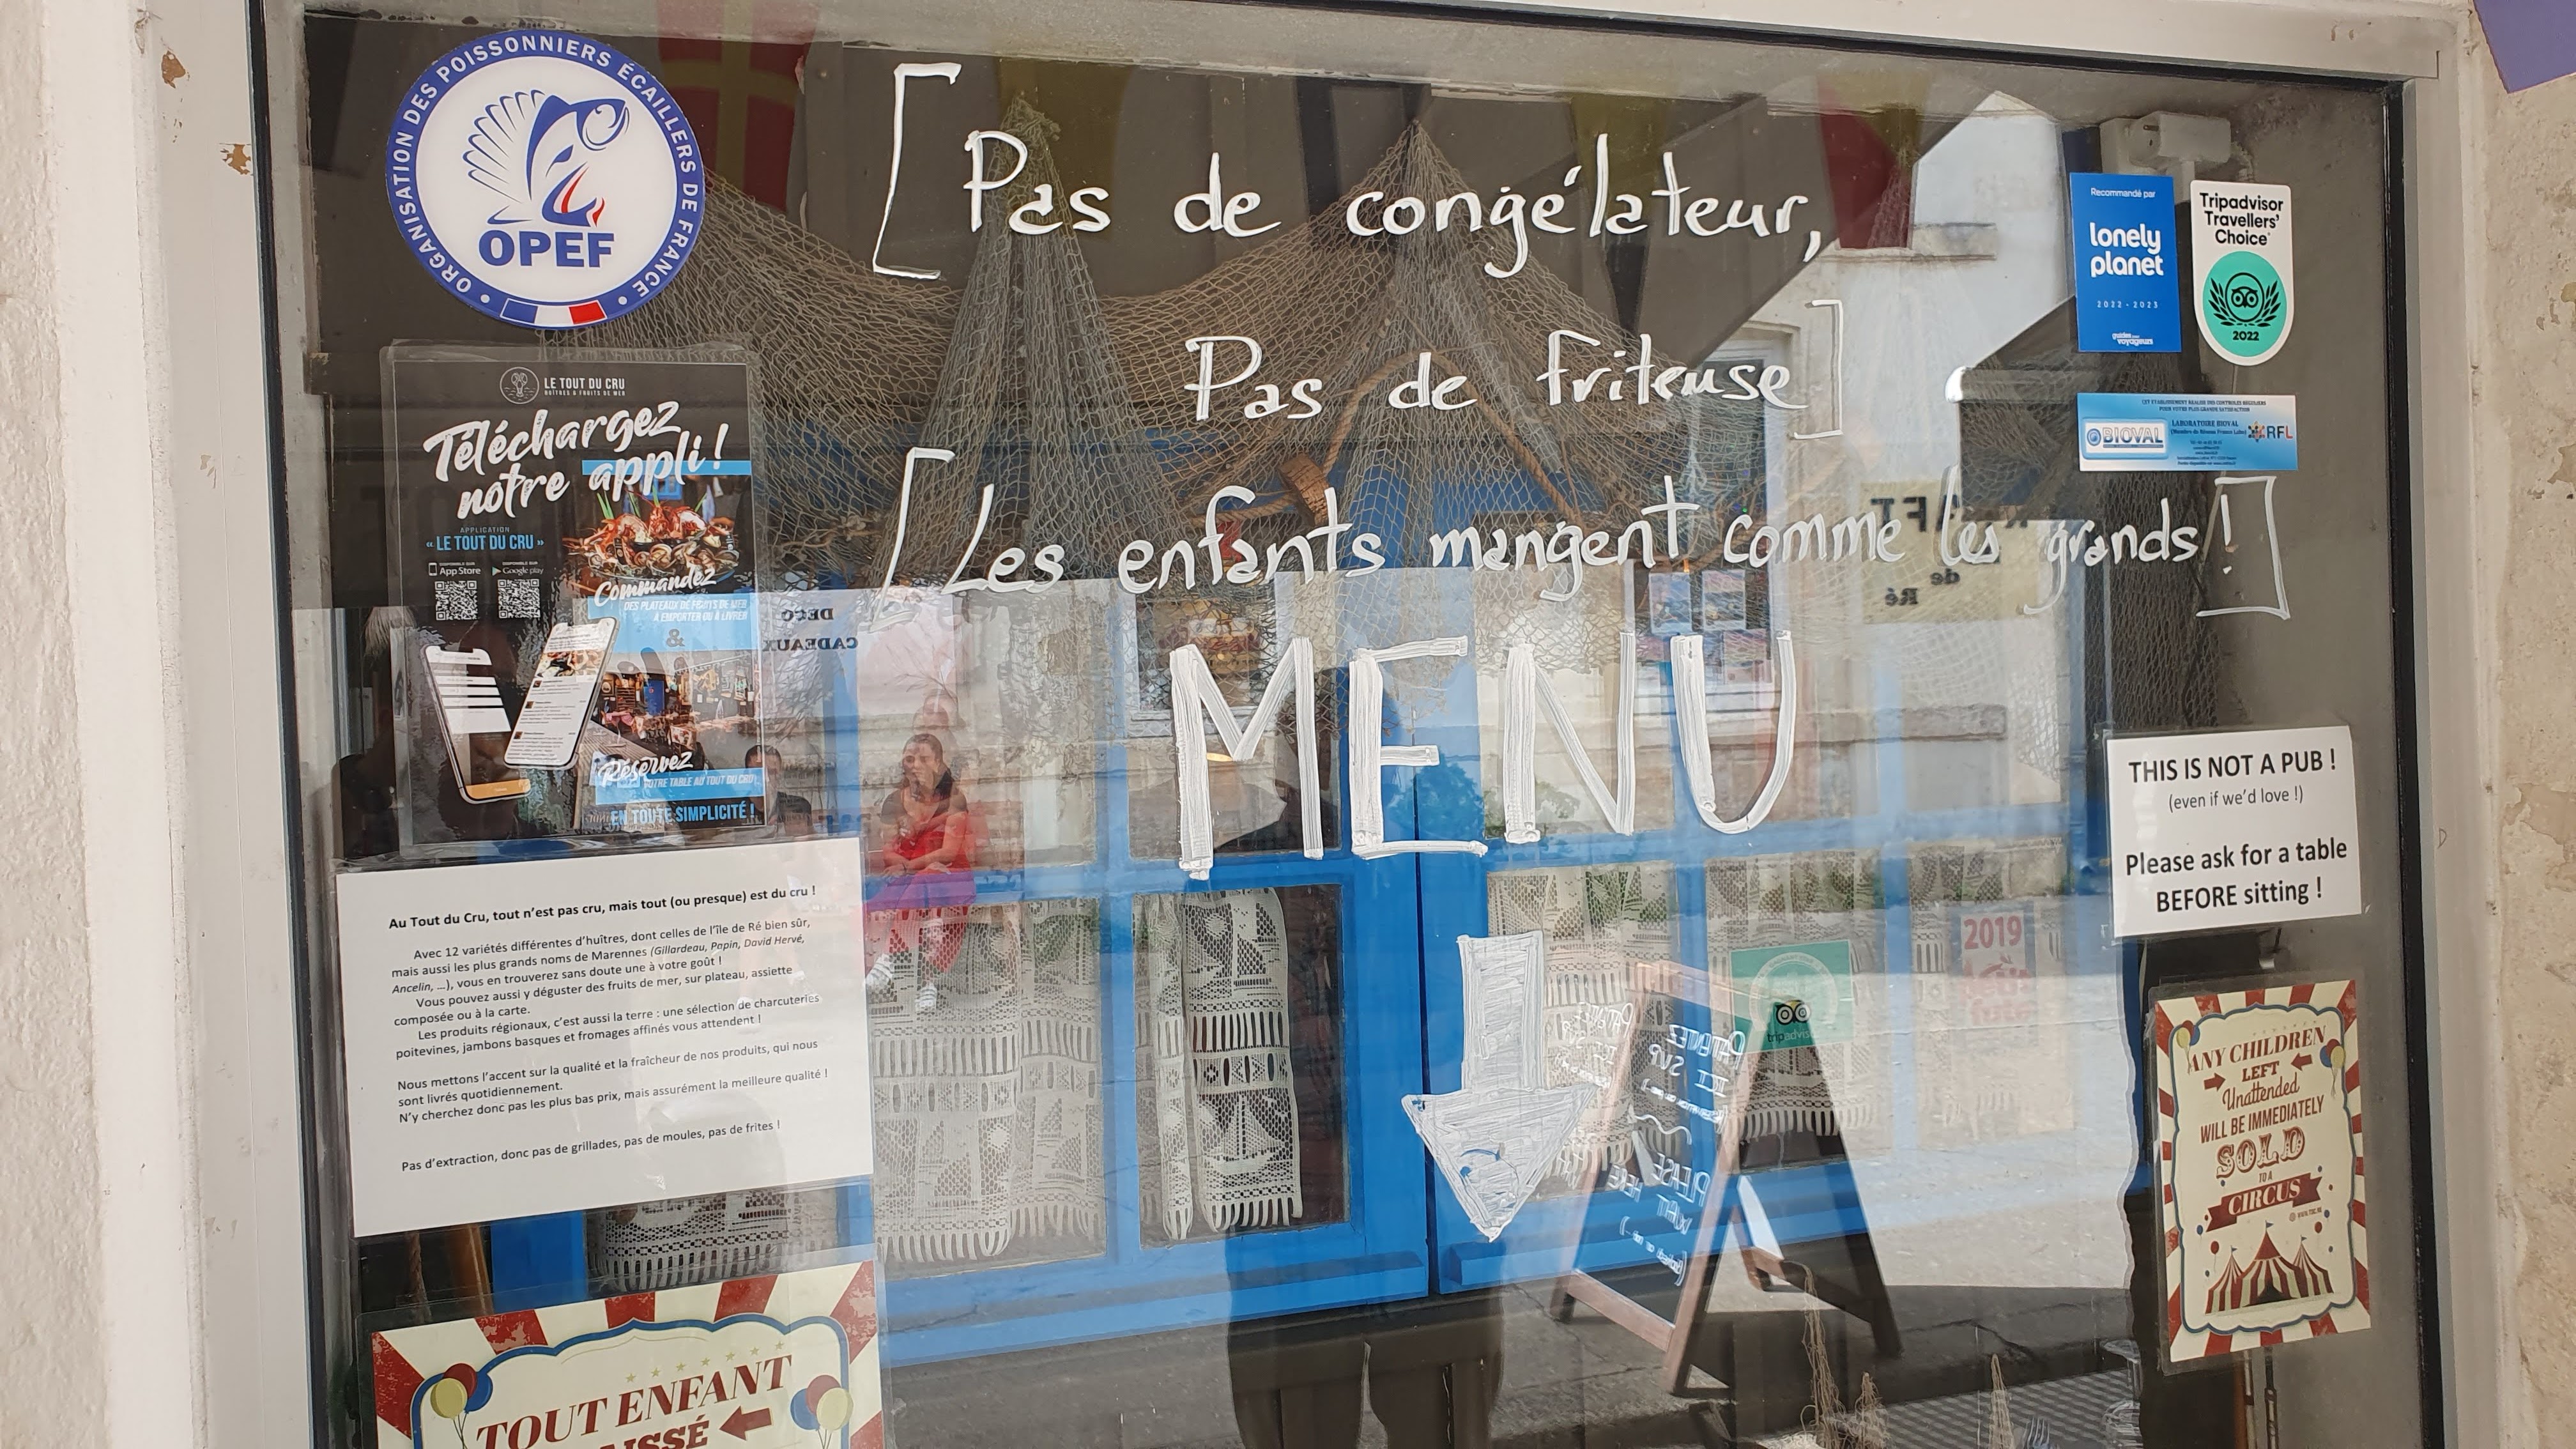 ORGANISATION DES POISSONNIERS ÉCAILLERS DE FRANCE
OPEF
[Pas de congélateur,
Pas de friteuse]
[Les enfants mangent comme les grands!]
MENU
LE TOUT DU CRU
HUÎTRES & FRUITS DE MER
Téléchargez
notre appli !
APPLICATION
« LE TOUT DU CRU »
DISPONIBLE SUR
App Store
DISPONIBLE SUR
Google play
Commandez
DES PLATEAUX DE FRUITS DE MER
À EMPORTER OU À LIVRER
&
Réservez
VOTRE TABLE AU TOUT DU CRU
EN TOUTE SIMPLICITÉ !
DECO
CADEAUX
Au Tout du Cru, tout n'est pas cru, mais tout (ou presque) est du cru !
Avec 12 variétés différentes d'huîtres, dont celles de l'île de Ré bien sûr,
mais aussi les plus grands noms de Marennes (Gillardeau, Papin, David Hervé,
Ancelin, …), vous en trouverez sans doute une à votre goût !
Vous pouvez aussi y déguster des fruits de mer, sur plateau, assiette
composée ou à la carte.
Les produits régionaux, c'est aussi la terre : une sélection de charcuteries
poitevines, jambons basques et fromages affinés vous attendent !
Nous mettons l'accent sur la qualité et la fraîcheur de nos produits, qui nous
sont livrés quotidiennement.
N'y cherchez donc pas les plus bas prix, mais assurément la meilleure qualité !
Pas d'extraction, donc pas de grillades, pas de moules, pas de frites !
TOUT ENFANT
Recommandé par
lonely
planet
2022 - 2023
voyageurs
Tripadvisor
Travellers'
Choice
2022
CET ÉTABLISSEMENT RÉALISE DES CONTRÔLES RÉGULIERS
POUR VOTRE PLUS GRANDE SATISFACTION
BIOVAL
LABORATOIRE BIOVAL
RFL
de
Ré
THIS IS NOT A PUB !
(even if we'd love !)
Please ask for a table
BEFORE sitting !
2019
tripadvis
PATIENTEZ
ICI SVP
PLEASE
WAIT HERE
ANY CHILDREN
LEFT
Unattended
WILL BE IMMEDIATELY
SOLD
TO A
CIRCUS